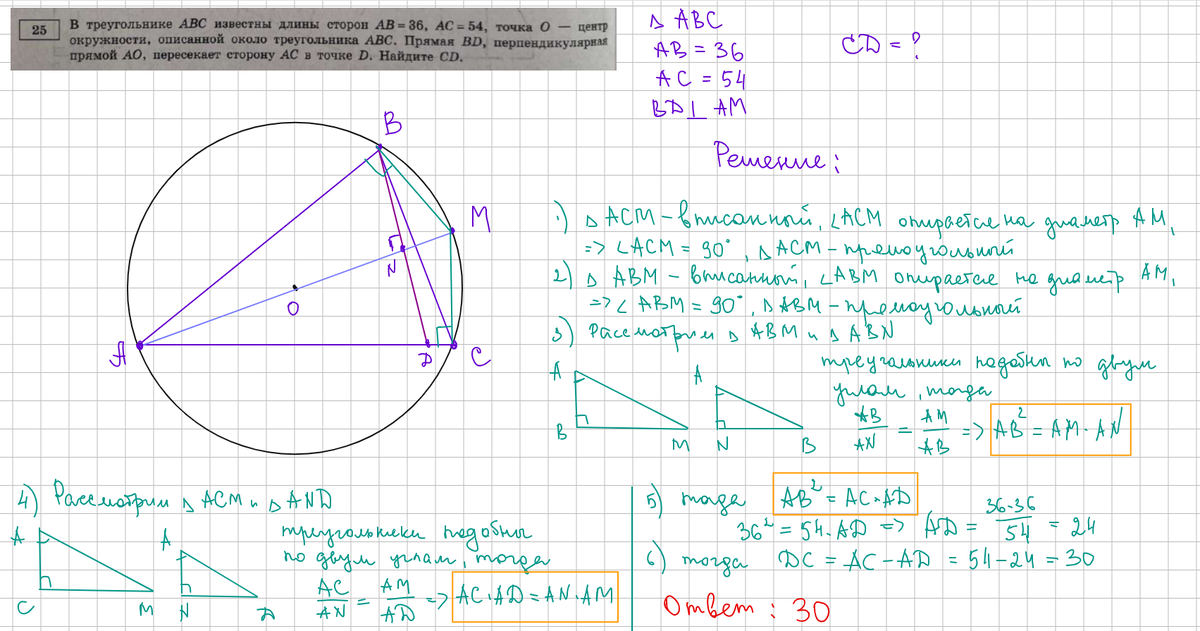 25
В треугольнике ABC известны длины сторон AB = 36, AC = 54, точка O — центр
окружности, описанной около треугольника ABC. Прямая BD, перпендикулярная
прямой AO, пересекает сторону AC в точке D. Найдите CD.
△ ABC
AB = 36
AC = 54
BD ⊥ AM
CD = ?
Решение:
B
M
N
O
A
D
C
1) △ ACM – вписанный, ∠ACM опирается на диаметр AM,
=> ∠ACM = 90°, △ ACM – прямоугольный
2) △ ABM – вписанный, ∠ABM опирается на диаметр AM,
=> ∠ ABM = 90°, △ ABM – прямоугольный
3) Рассмотрим △ ABM и △ ABN
A
B
M
A
N
B
треугольники подобны по двум
углам, тогда
AB/AN = AM/AB => AB² = AM · AN
4) Рассмотрим △ ACM и △ AND
A
C
M
A
N
D
треугольники подобны
по двум углам, тогда
AC/AN = AM/AD => AC · AD = AN · AM
5) тогда AB² = AC · AD
36² = 54 · AD => AD = 36·36/54 = 24
6) тогда DC = AC – AD = 54 – 24 = 30
Ответ: 30